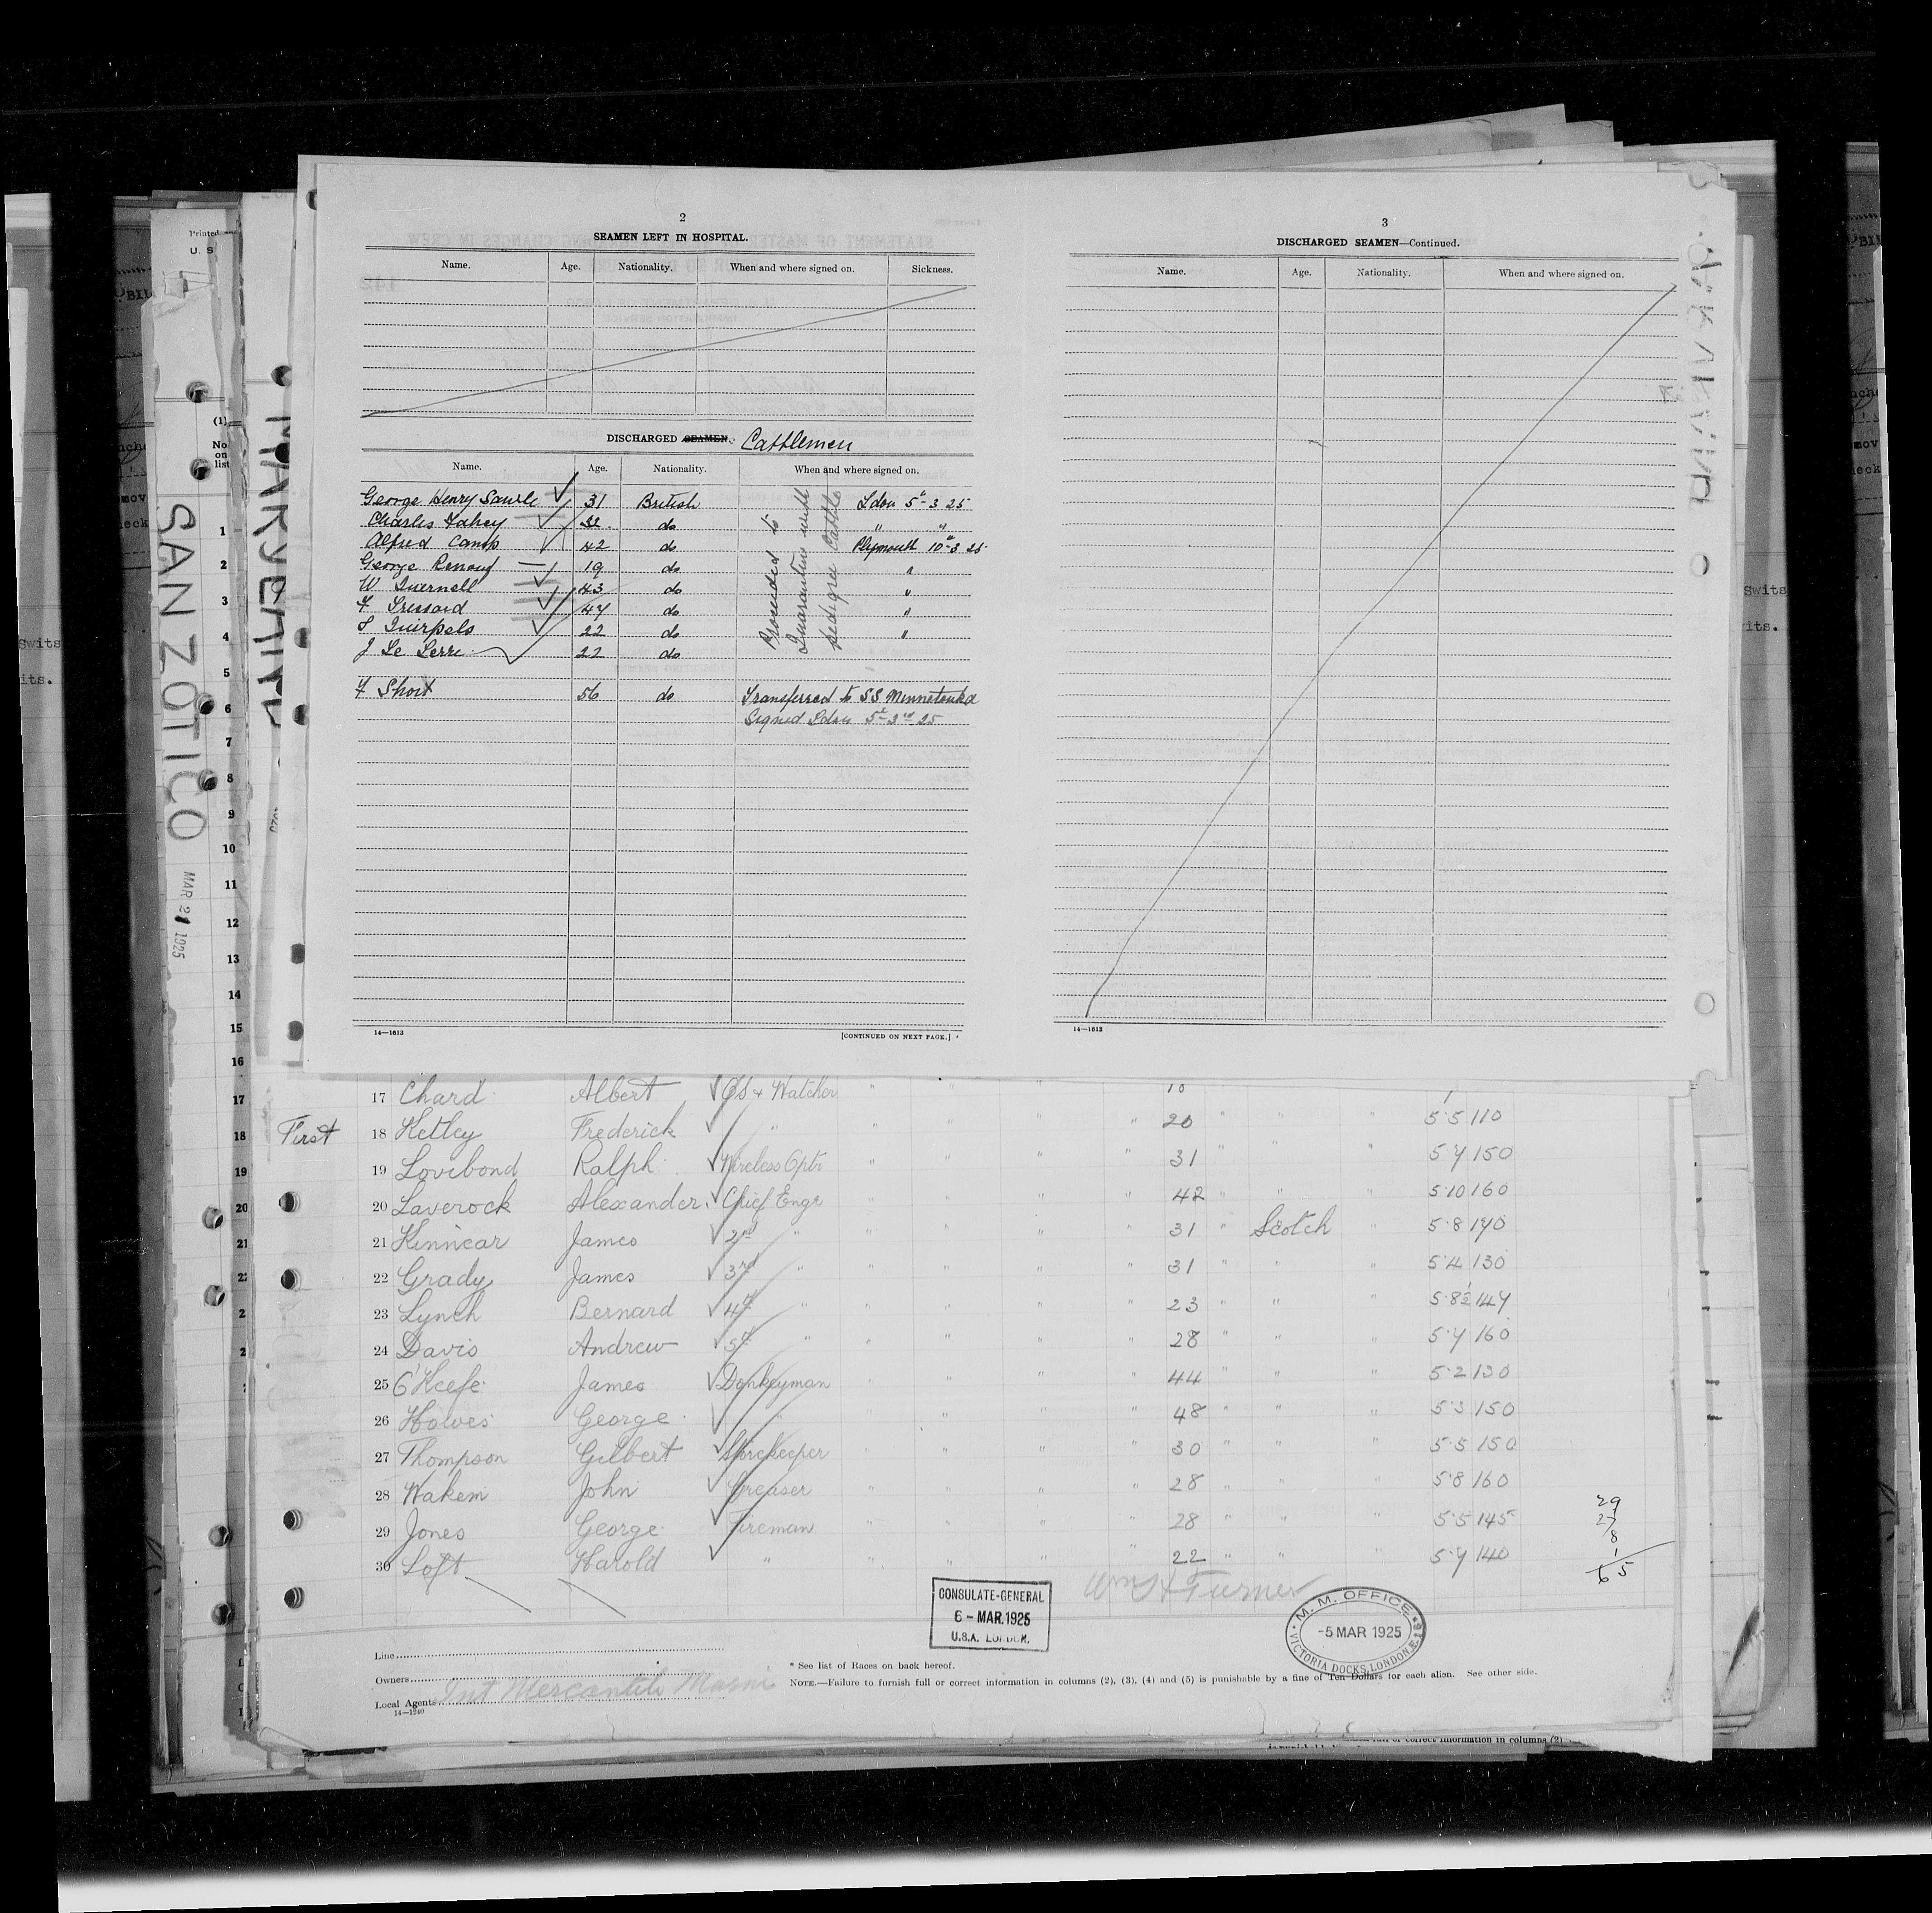 2
SEAMEN LEFT IN HOSPITAL.
Name. Age. Nationality. When and where signed on. Sickness.
DISCHARGED SEAMEN. Cattlemen
Name. Age. Nationality. When and where signed on.
George Henry 31 British Ldon 5" 3 25
Charles Fahey 32 do " "
Alfred Camp 42 do Plymouth 10" 3 25
George Renouf 19 do "
W 43 do "
F 47 do "
22 do "
J Le 22 do
Proceeded to
Quarantine with
pedigree Cattle
F Short 56 do Transferred to SS Minnetonka
Signed Ldon 5" 3rd 25
14—1613
[CONTINUED ON NEXT PAGE.]
3
DISCHARGED SEAMEN—Continued.
Name. Age. Nationality. When and where signed on.
14—1613
Printed
U. S
(1)
No
on
list
SAN ZOTICO
MAR 21 1925
1
2
3
4
5
6
7
8
9
10
11
12
13
14
15
16
17
18
19
20
21
17 Chard Albert OS & Watcher " " "
First 18 Ketley Frederick " " " " " 20 " " " 5·5 110
19 Lovibond Ralph Wireless Optr " " " " 31 " " " 5·7 150
20 Laverock Alexander Chief Engr " " " " 42 " " " 5·10 160
21 Kinnear James 2nd " " " " " 31 " Scotch " 5·8 170
22 Grady James 3rd " " " " " 31 " " " 5·4 130
23 Lynch Bernard 4th " " " " " 23 " " " 5·8½ 147
24 Davis Andrew 5th " " " " " 28 " " " 5·7 160
25 O'Keefe James Donkeyman " " " " 44 " " " 5·2 130
26 Howes George " " " " " 48 " " " 5·3 150
27 Thompson Gilbert Storekeeper " " " " 30 " " " 5·5 150
28 Wakem John Greaser " " " " 28 " " " 5·8 160
29 Jones George Fireman " " " " 28 " " " 5·5 145
30 Loft Harold " " " " " 22 " " " 5·7 140
29
27
8
1
65
Wm H Turner
CONSULATE-GENERAL
6 - MAR.1925
U.S.A. LONDON.
M. M. OFFICE
-5 MAR 1925
VICTORIA DOCKS, LONDON.E.16
Line
Owners
Local Agents Int Mercantile Marine
14—1240
* See list of Races on back hereof.
NOTE.—Failure to furnish full or correct information in columns (2), (3), (4) and (5) is punishable by a fine of Ten Dollars for each alien. See other side.
correct information in columns (2)